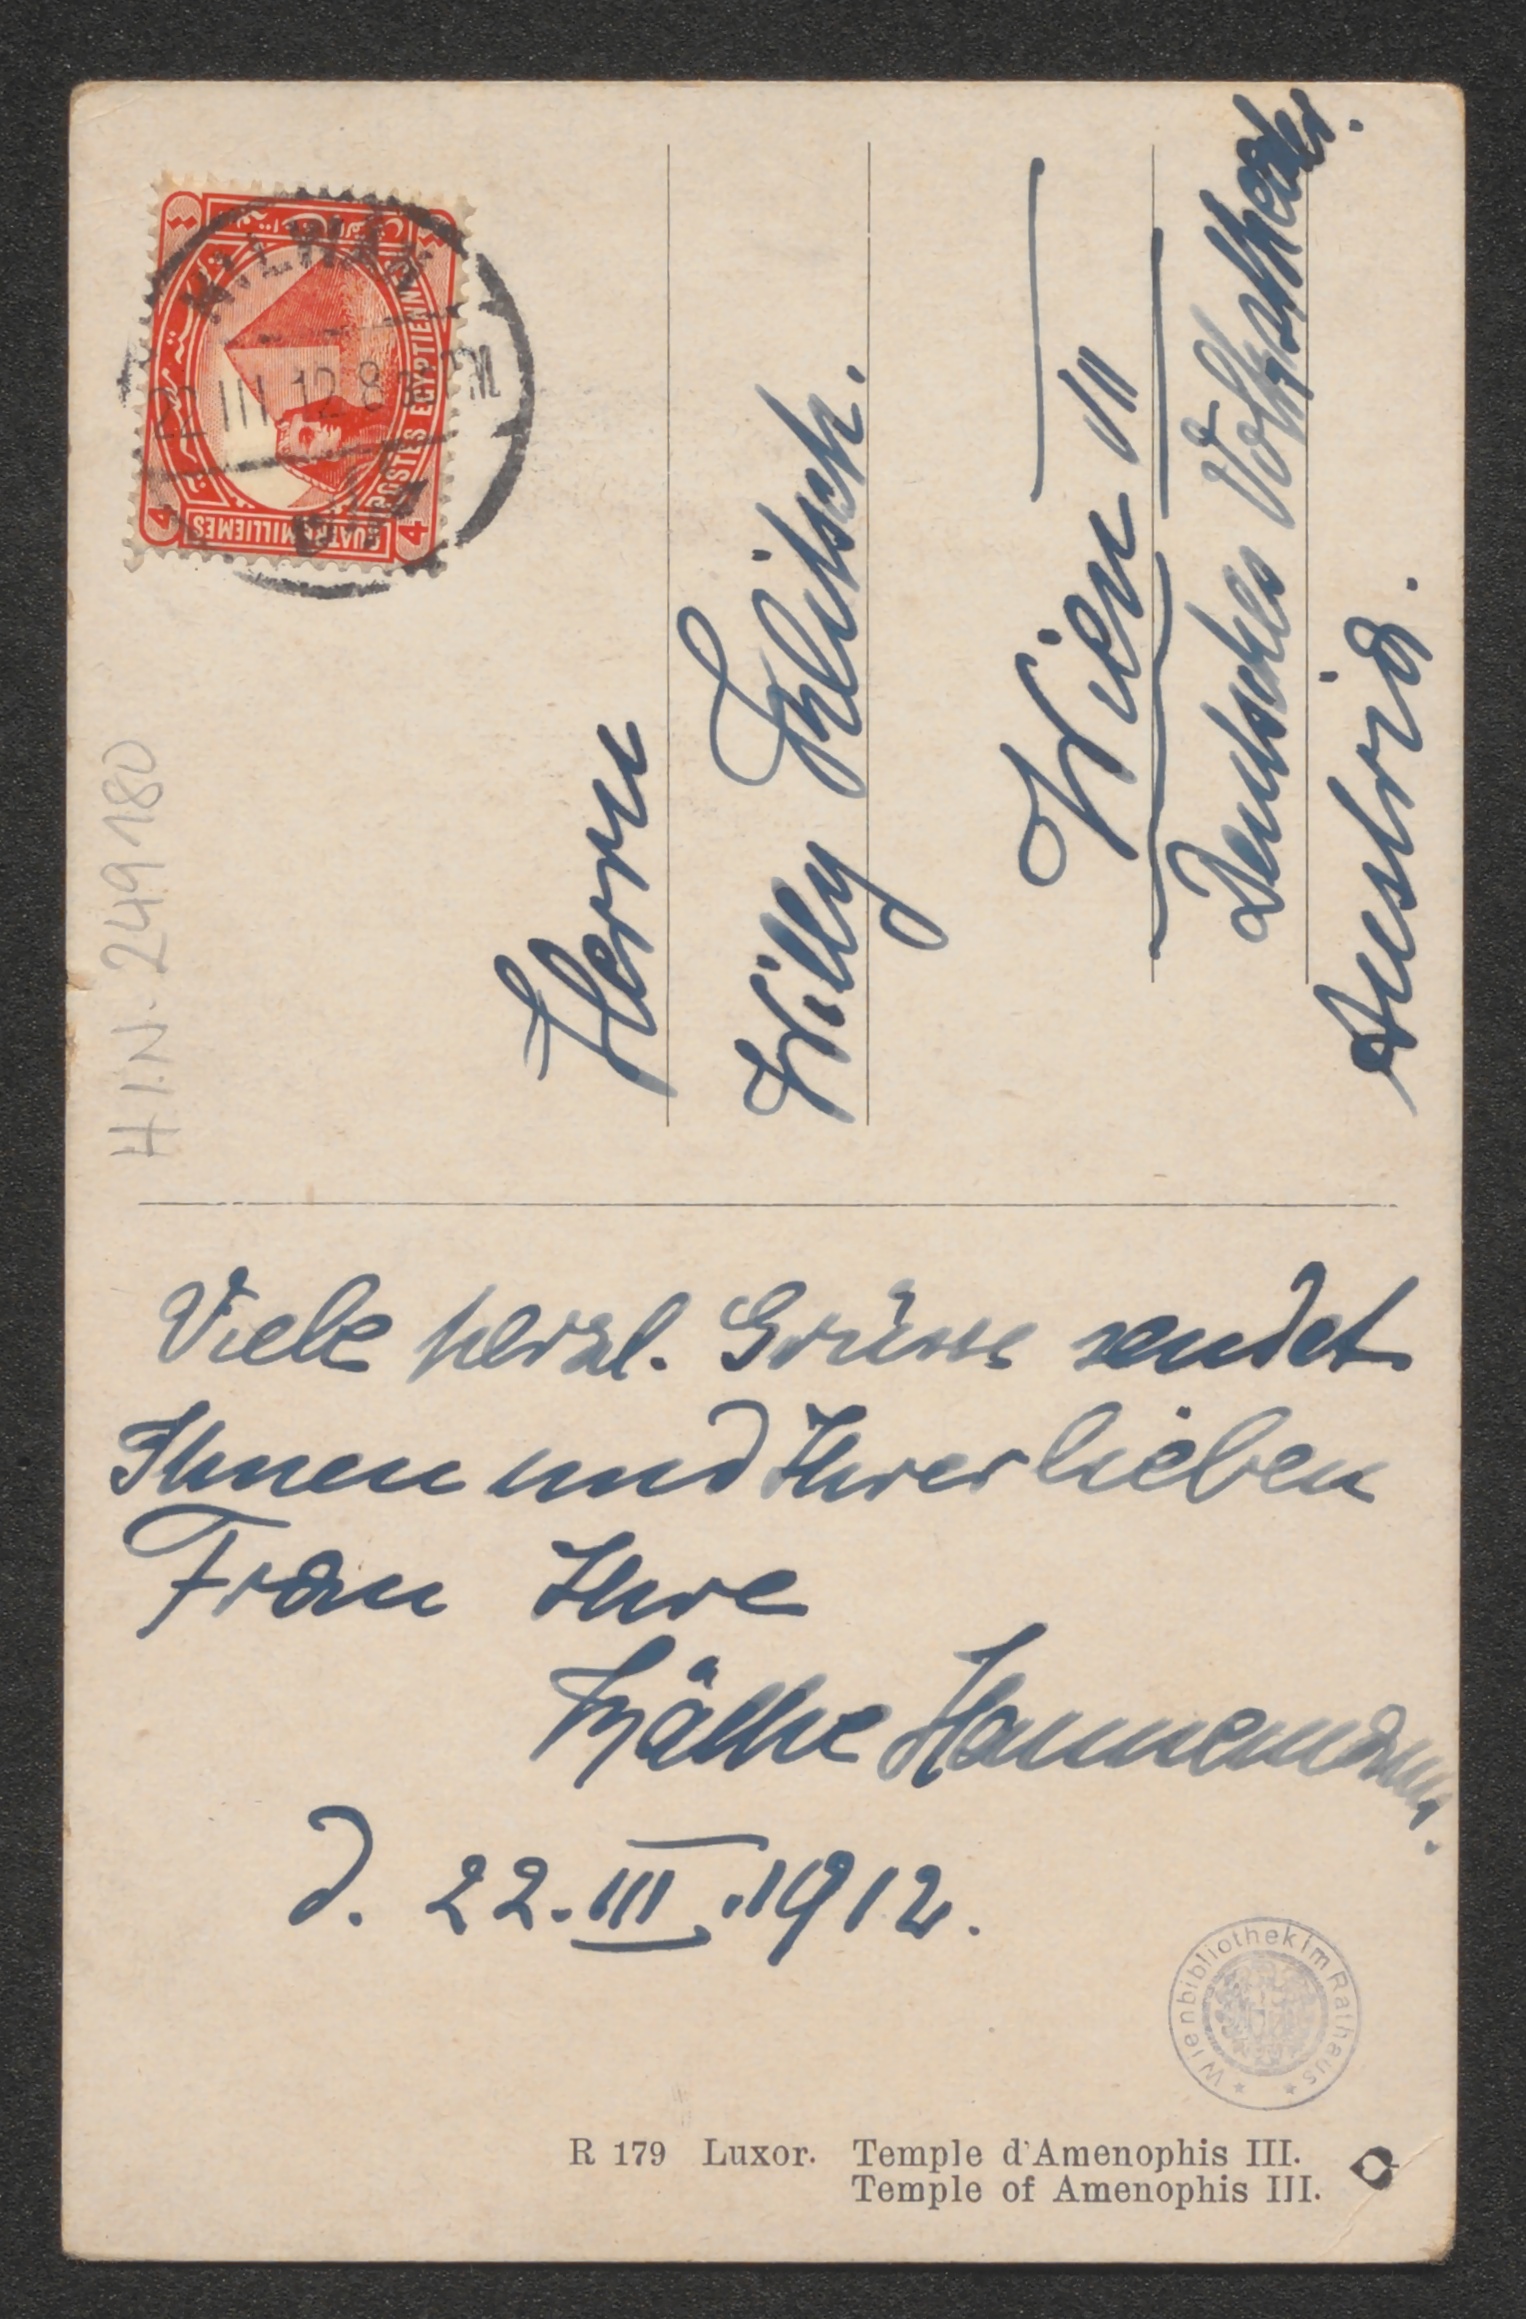 Viele herzl. Grüsse sendet
Ihnen und Ihrer lieben
Frau Ihre
Käthe Hannemann.
d. 22. III. 1912.
Herrn
Willy Klitsch.
Wien III
Deutsches Volkstheater.
Austria.
H.I.N. 249180
22 III 12 8
POSTES EGYPTIENNES
QUATRE MILLIEMES
4
4
Wienbibliothek im Rathaus
R 179 Luxor. Temple d'Amenophis III.
Temple of Amenophis III.